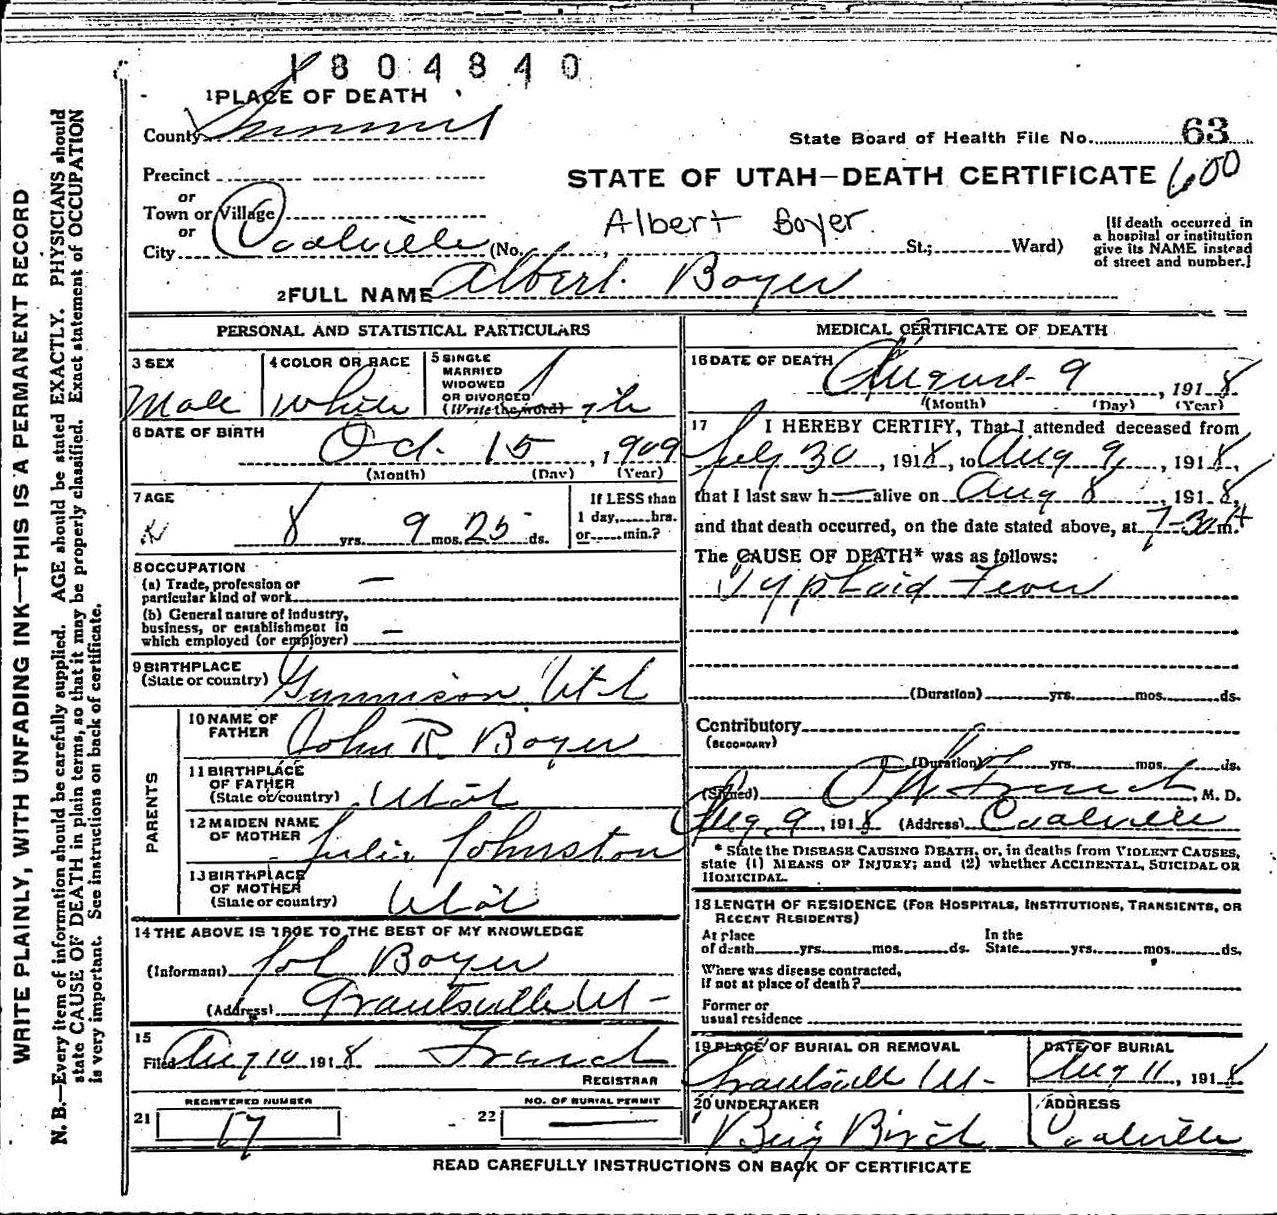 1804840
1 PLACE OF DEATH
County Summit
State Board of Health File No. 63
Precinct
or
STATE OF UTAH—DEATH CERTIFICATE 600
Town or Village
or
Albert Boyer
City Coalville (No. , St.; Ward)
[If death occurred in
a hospital or institution
give its NAME instead
of street and number.]
2 FULL NAME Albert Boyer
PERSONAL AND STATISTICAL PARTICULARS
3 SEX
Male
4 COLOR OR RACE
White
5 SINGLE
MARRIED
WIDOWED
OR DIVORCED
(Write the word)
6 DATE OF BIRTH
Oct. 15, 1909
(Month) (Day) (Year)
7 AGE
8 yrs. 9 mos. 25 ds.
If LESS than
1 day, hrs.
or min.?
8 OCCUPATION
(a) Trade, profession or
particular kind of work —
(b) General nature of industry,
business, or establishment in
which employed (or employer) —
9 BIRTHPLACE
(State or country) Gunnison Utah
PARENTS
10 NAME OF
FATHER John R Boyer
11 BIRTHPLACE
OF FATHER
(State or country) Utah
12 MAIDEN NAME
OF MOTHER Julia Johnston
13 BIRTHPLACE
OF MOTHER
(State or country) Utah
14 THE ABOVE IS TRUE TO THE BEST OF MY KNOWLEDGE
(Informant) Boyer
(Address) Grantsville Ut—
15
Filed Aug 10 1918 French
REGISTRAR
REGISTERED NUMBER
21 17
NO. OF BURIAL PERMIT
22 —
MEDICAL CERTIFICATE OF DEATH
16 DATE OF DEATH
August 9, 1918
(Month) (Day) (Year)
17 I HEREBY CERTIFY, That I attended deceased from
July 30, 1918, to Aug 9, 1918,
that I last saw h— alive on Aug 8, 1918,
and that death occurred, on the date stated above, at 7-30 A m.
The CAUSE OF DEATH* was as follows:
Typhoid Fever
(Duration) yrs. mos. ds.
Contributory
(SECONDARY)
(Duration) yrs. mos. ds.
(Signed) French, M. D.
Aug 9, 1918 (Address) Coalville
* State the DISEASE CAUSING DEATH, or, in deaths from VIOLENT CAUSES,
state (1) MEANS OF INJURY; and (2) whether ACCIDENTAL, SUICIDAL OR
HOMICIDAL.
18 LENGTH OF RESIDENCE (FOR HOSPITALS, INSTITUTIONS, TRANSIENTS, OR
RECENT RESIDENTS)
At place
of death yrs. mos. ds.
In the
State yrs. mos. ds.
Where was disease contracted,
if not at place of death?
Former or
usual residence
19 PLACE OF BURIAL OR REMOVAL
Grantsville Ut—
DATE OF BURIAL
Aug 11, 1918
20 UNDERTAKER
Birch
ADDRESS
Coalville
READ CAREFULLY INSTRUCTIONS ON BACK OF CERTIFICATE
WRITE PLAINLY, WITH UNFADING INK—THIS IS A PERMANENT RECORD
N. B.—Every item of information should be carefully supplied. AGE should be stated EXACTLY. PHYSICIANS should
state CAUSE OF DEATH in plain terms, so that it may be properly classified. Exact statement of OCCUPATION
is very important. See instructions on back of certificate.